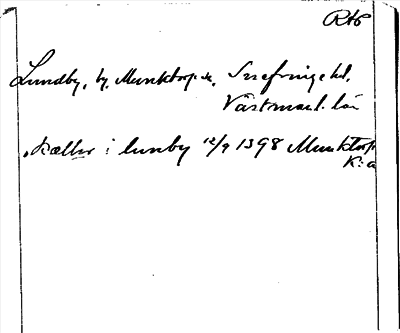 RHP
Lundby, by, Munktorp sn, Snefringe hd,
Västmanl. län
Kætler i lunby 12/9 1398 Munktorp
K:a